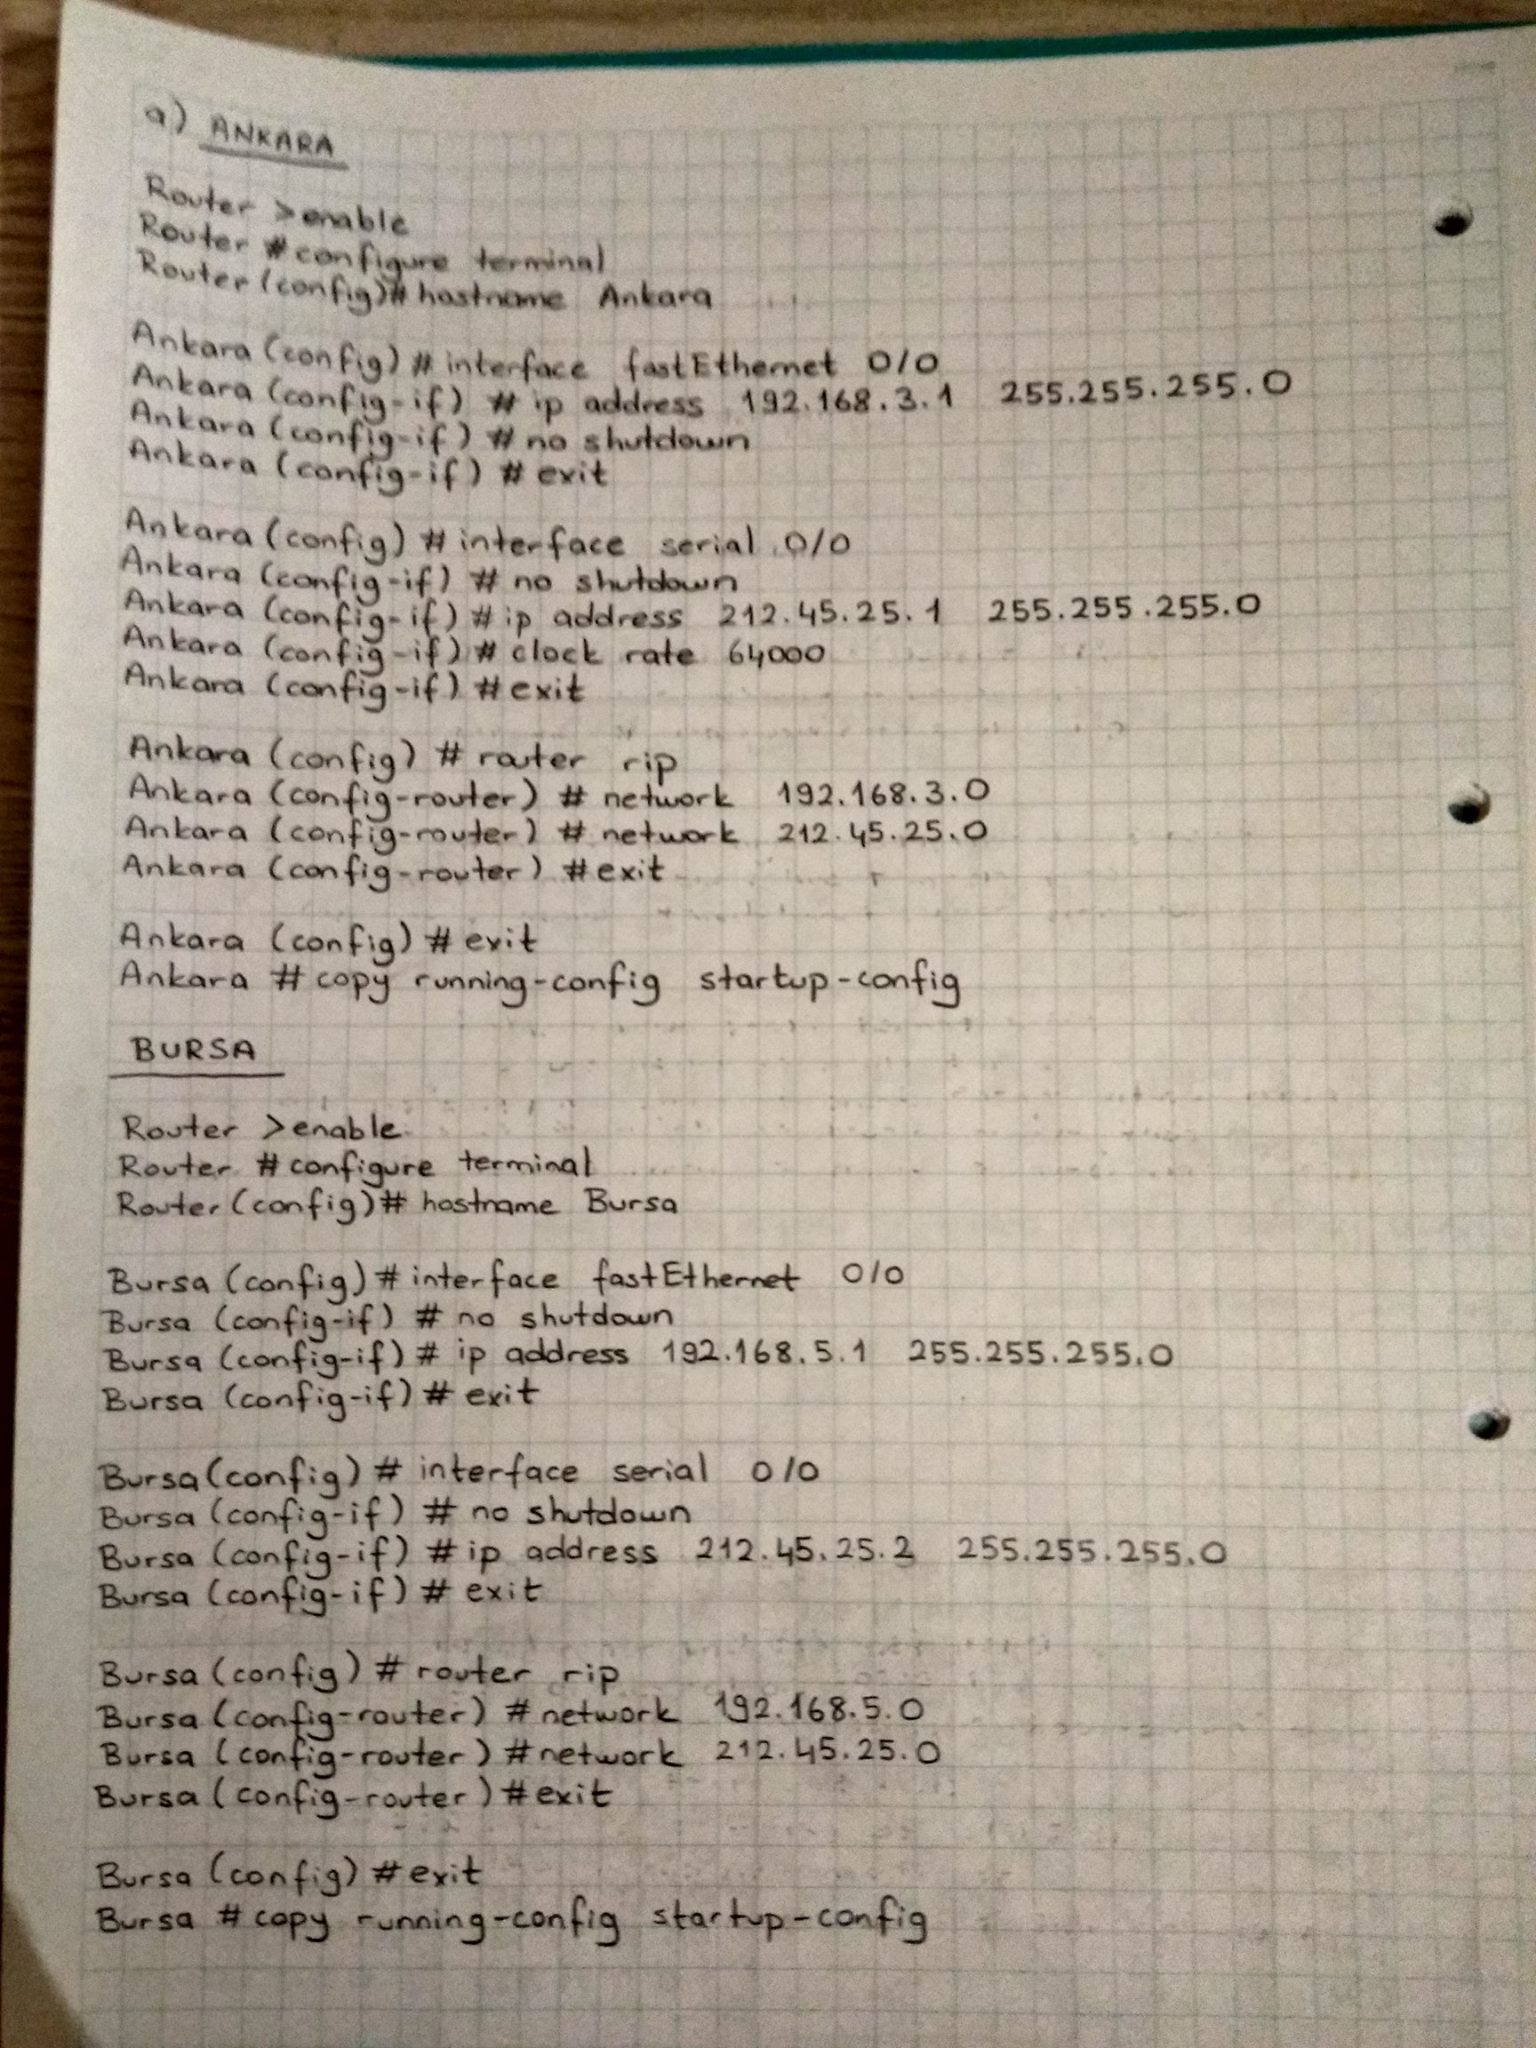 a) ANKARA
Router >enable
Router #configure terminal
Router (config)# hostname Ankara
Ankara (config) # interface fastEthernet 0/0
Ankara (config-if) # ip address 192.168.3.1 255.255.255.0
Ankara (config-if) # no shutdown
Ankara (config-if) # exit
Ankara (config) # interface serial 0/0
Ankara (config-if) # no shutdown
Ankara (config-if) # ip address 212.45.25.1 255.255.255.0
Ankara (config-if) # clock rate 64000
Ankara (config-if) # exit
Ankara (config) # router rip
Ankara (config-router) # network 192.168.3.0
Ankara (config-router) # network 212.45.25.0
Ankara (config-router) #exit
Ankara (config) # exit
Ankara # copy running-config startup-config
BURSA
Router >enable
Router #configure terminal
Router (config)# hostname Bursa
Bursa (config) # interface fastEthernet 0/0
Bursa (config-if) # no shutdown
Bursa (config-if) # ip address 192.168.5.1 255.255.255.0
Bursa (config-if) # exit
Bursa (config) # interface serial 0/0
Bursa (config-if) # no shutdown
Bursa (config-if) # ip address 212.45.25.2 255.255.255.0
Bursa (config-if) # exit
Bursa (config) # router rip
Bursa (config-router) # network 192.168.5.0
Bursa (config-router) #network 212.45.25.0
Bursa (config-router) #exit
Bursa (config) #exit
Bursa # copy running-config startup-config